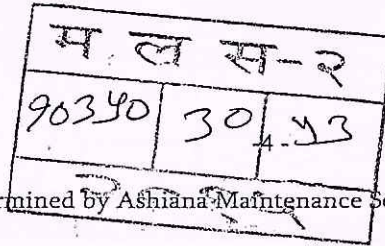 म ल स-२
१०३५० ३० ५३
-4-
rmined by Ashiana Maintenance Se